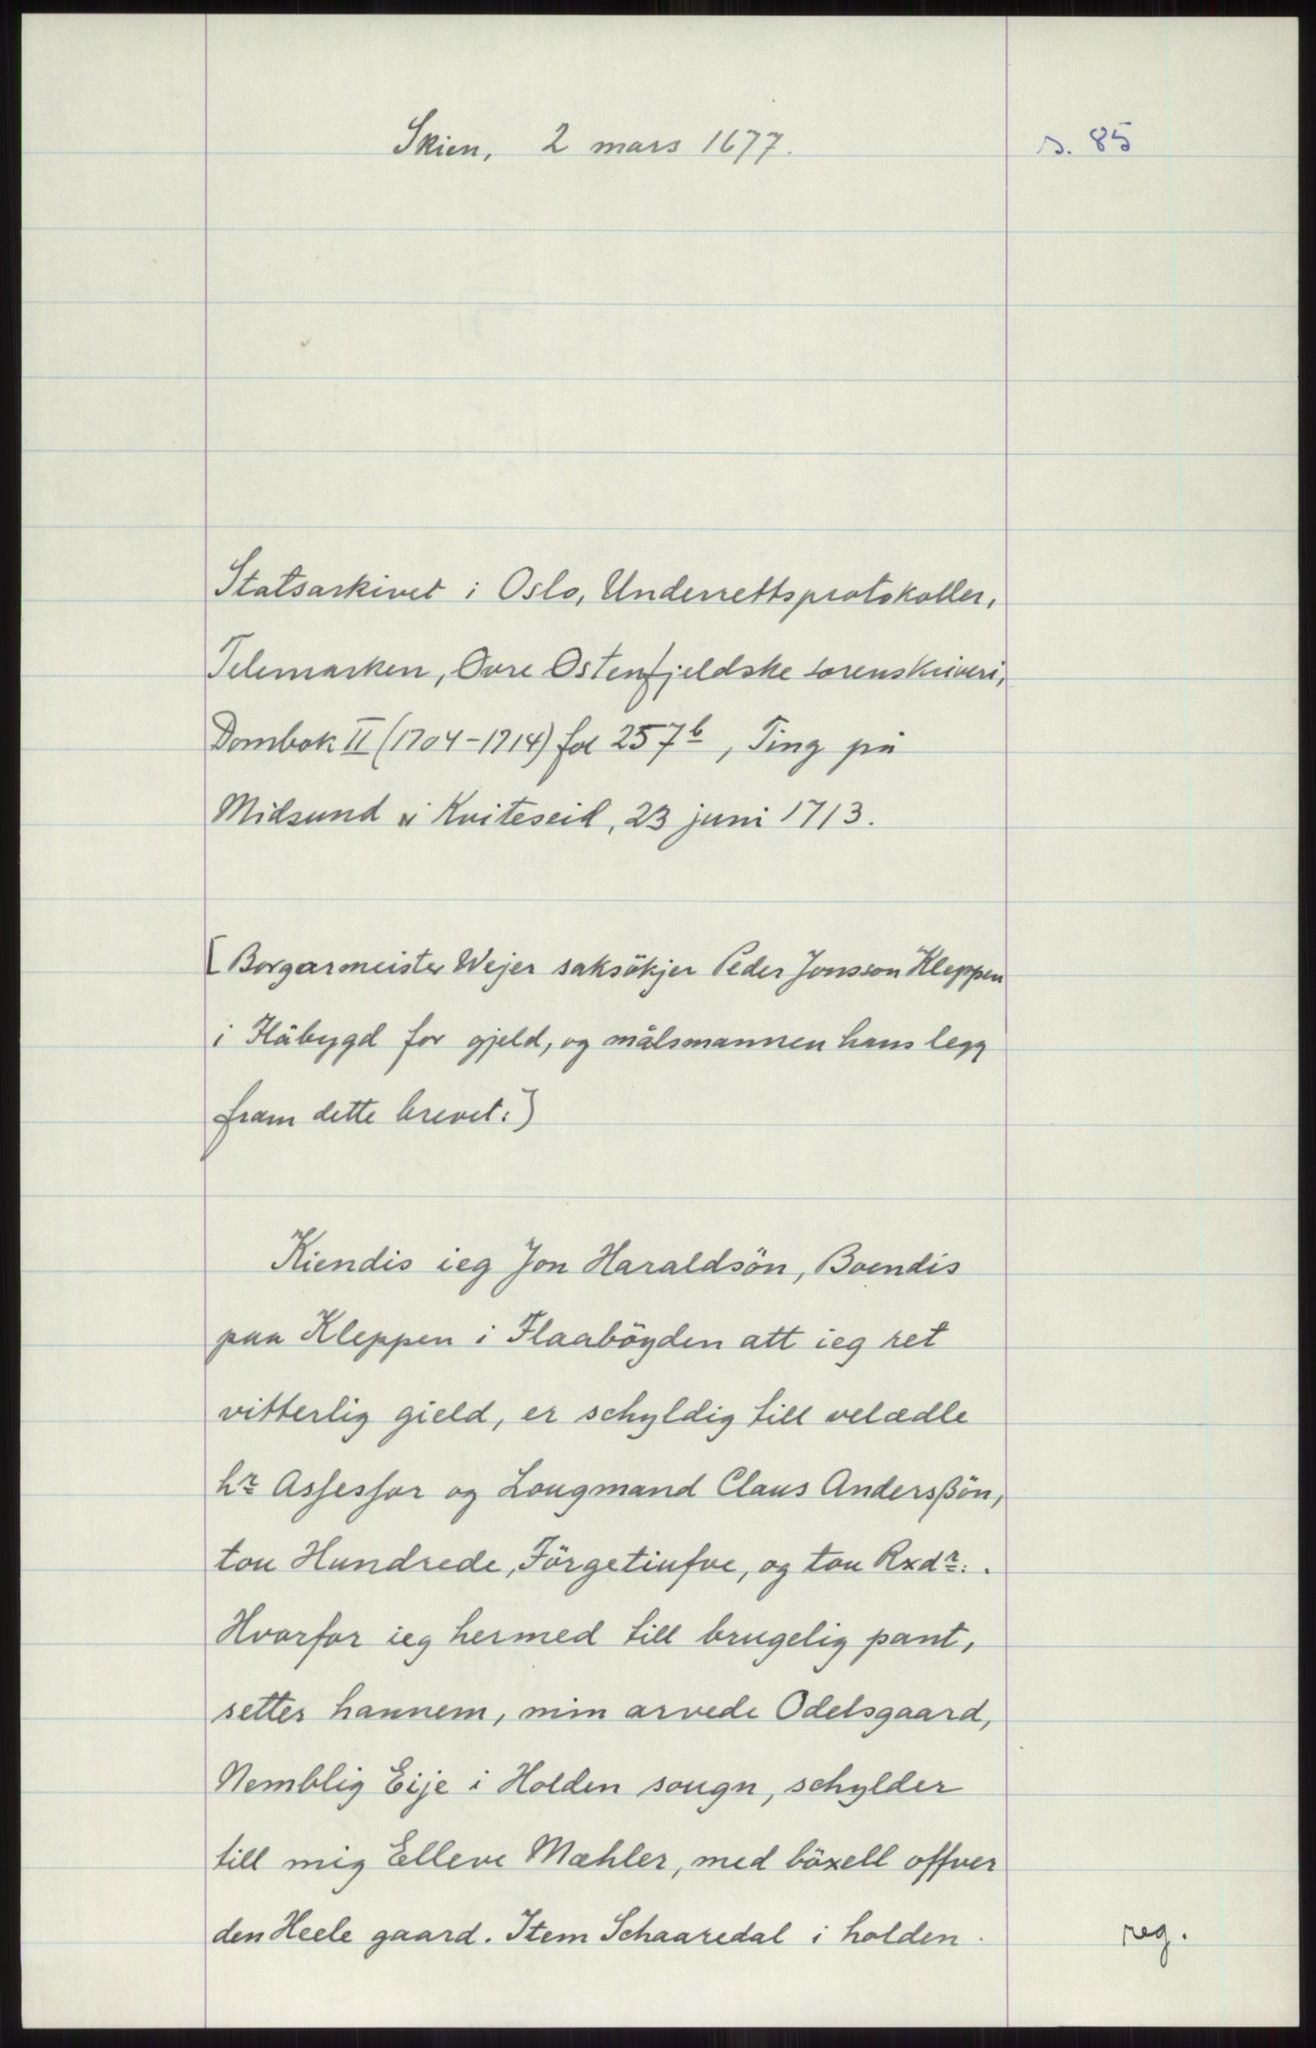 Skien, 2 mars 1677.
s. 85
Statsarkivet i Oslo, Underrettsprotokoller,
Telemarken, Øvre Østenfjeldske sorenskriveri,
Dombok II (1704-1714) fol 257b, Ting på
Midsund i Kviteseid, 23 juni 1713.
[Borgarmeister Wejer saksökjer Peder Jonsson Kleppen
i Flåbygd for gjeld, og målsmannen hans legg
fram dette brevet:]
Kiendis ieg Jon Haraldsön, Boendis
paa Kleppen i Flaaböyden att ieg ret
vitterlig gield, er schyldig till velædle
hr Assessor og Laugmand Claus Andersßön,
tou Hundrede, Förgetiufve, og tou Rxdr:.
Hvorfor ieg hermed till brugelig pant,
setter hannem, min arvede Odelsgaard,
Nemblig Eije i Holden sougn, schylder
till mig Elleve Mæhler, med böxell offver
den Heele gaard. Item Schaaredal i holden
reg.